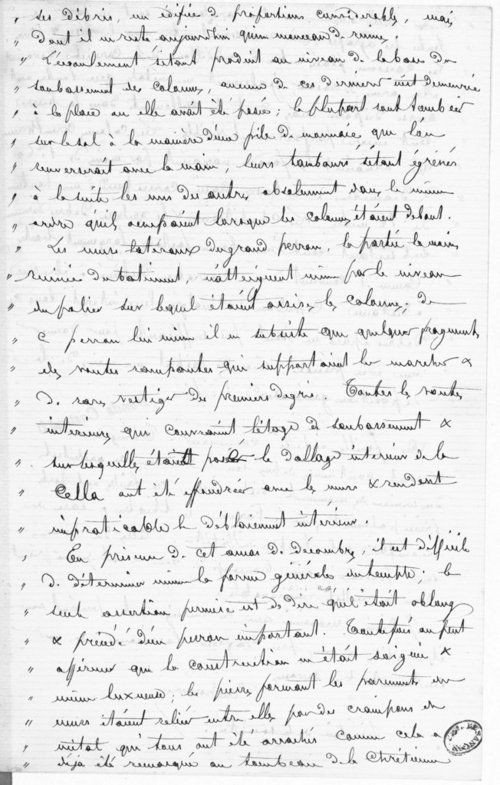 " ses débris, un édifice de proportions considérables, mais
" dont il ne reste aujourd'hui qu'un monceau de ruines.
" L'écroulement s'étant produit au niveau de la base du
" soubassement des colonnes, aucune de ces dernières n'est demeurée
" à la place où elle avait été posée ; la plupart sont tombées
" sur le sol à la manière d'une pile de monnaie que l'on
" renverserait avec la main, leurs tambours s'étant égrénés
" à la suite les uns des autres absolument dans le même
" ordre qu'ils occupaient lorsque les colonnes étaient debout.
" Les murs latéraux du grand perron, la partie la moins
" ruinée du bâtiment, n'atteignent même pas le niveau
" du palier sur lequel étaient assises les colonnes ; de
" ce perron lui même il ne subsiste que quelques fragments
" des voûtes rampantes qui supportaient les marches &
" de rares vestiges des premiers degrés. Toutes les voûtes
" intérieures qui couvraient l'étage de soubassement &
" sur lesquelles était posé le dallage intérieur de la
" Cella ont été effondrées avec les murs & rendent
" impraticable le déblaiement intérieur.
" En présence de cet amas de décombres, il est difficile
" de déterminer même la forme générale du temple ; la
" seule assertion permise est de dire qu'il était oblong
" & précédé d'un perron important. Toutefois on peut
" affirmer que la construction en était soignée &
" même luxueuse ; les pierres formant les parements des
" murs étaient reliées entre elles par des crampons en
" métal qui tous ont été arrachés comme cela a
" déjà été remarqué au tombeau de la Chrétienne